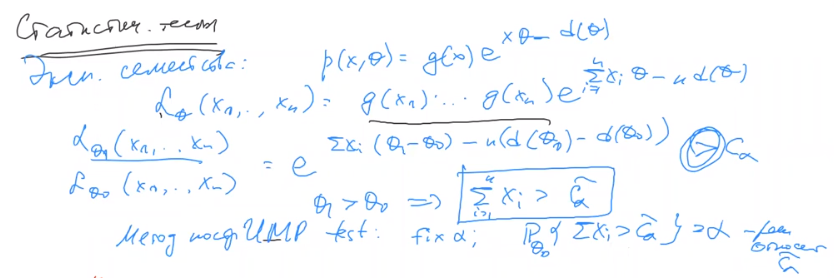 Статистич. тесты
Эксп. семейства: p(x,θ) = g(x) e^{xθ - d(θ)}
L_θ (x₁,..,xₙ) = g(x₁)·...·g(xₙ) e^{∑_{i=1}^{n} xᵢ θ - n d(θ)}
L_{θ₁}(x₁,..,xₙ) / L_{θ₀}(x₁,..,xₙ) = e^{∑xᵢ(θ₁-θ₀) - n(d(θ₁)-d(θ₀))} > C_α
θ₁ > θ₀ ⇒ ∑_{i=1}^{n} xᵢ > C̃_α
Метод постр. UMP test: fix α; P_{θ₀}{∑xᵢ > C̃_α} = α - реш. относит. C̃